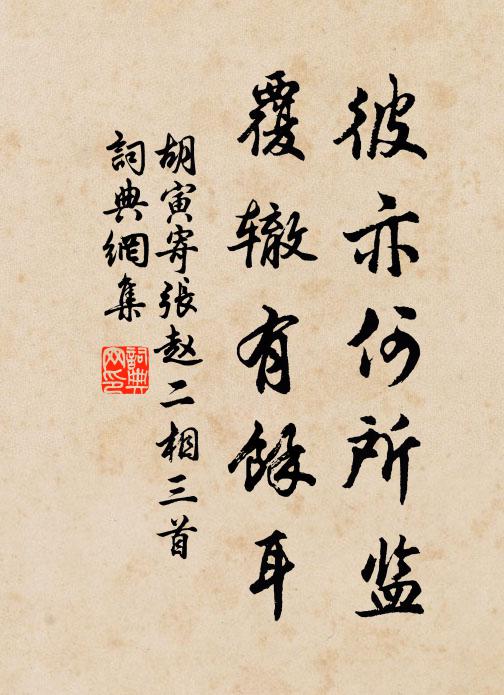 彼亦何所监
覆辙有馀耳
胡寅寄張赵二相三首
詞典網集
詞典网印